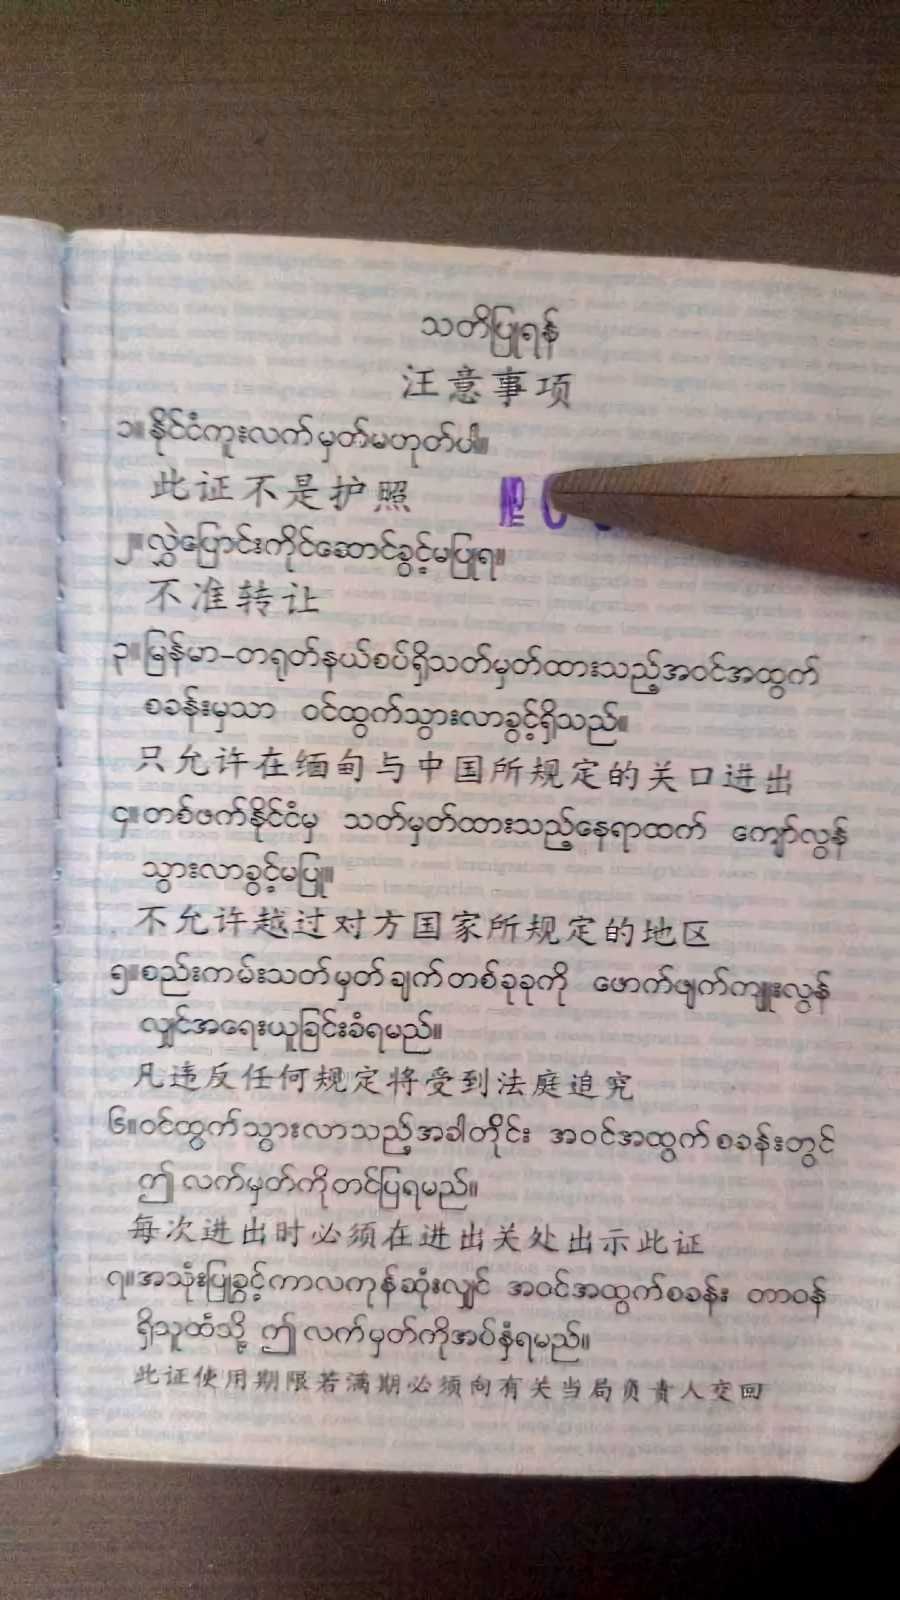 သတိပြုရန်
注意事项
၁။ နိုင်ငံကူးလက်မှတ်မဟုတ်ပါ။
此证不是护照
№ 0
၂။ လွှဲပြောင်းကိုင်ဆောင်ခွင့်မပြုရ။
不准转让
၃။ မြန်မာ-တရုတ်နယ်စပ်ရှိသတ်မှတ်ထားသည့်အဝင်အထွက်
စခန်းမှသာ ဝင်ထွက်သွားလာခွင့်ရှိသည်။
只允许在缅甸与中国所规定的关口进出
၄။ တစ်ဖက်နိုင်ငံမှ သတ်မှတ်ထားသည့်နေရာထက် ကျော်လွန်
သွားလာခွင့်မပြု။
不允许越过对方国家所规定的地区
၅။ စည်းကမ်းသတ်မှတ်ချက်တစ်ခုခုကို ဖောက်ဖျက်ကျူးလွန်
လျှင်အရေးယူခြင်းခံရမည်။
凡违反任何规定将受到法庭追究
၆။ ဝင်ထွက်သွားလာသည့်အခါတိုင်း အဝင်အထွက်စခန်းတွင်
ဤလက်မှတ်ကိုတင်ပြရမည်။
每次进出时必须在进出关处出示此证
၇။ အသုံးပြုခွင့်ကာလကုန်ဆုံးလျှင် အဝင်အထွက်စခန်း တာဝန်
ရှိသူထံသို့ ဤလက်မှတ်ကိုအပ်နှံရမည်။
此证使用期限若满期必须向有关当局负责人交回